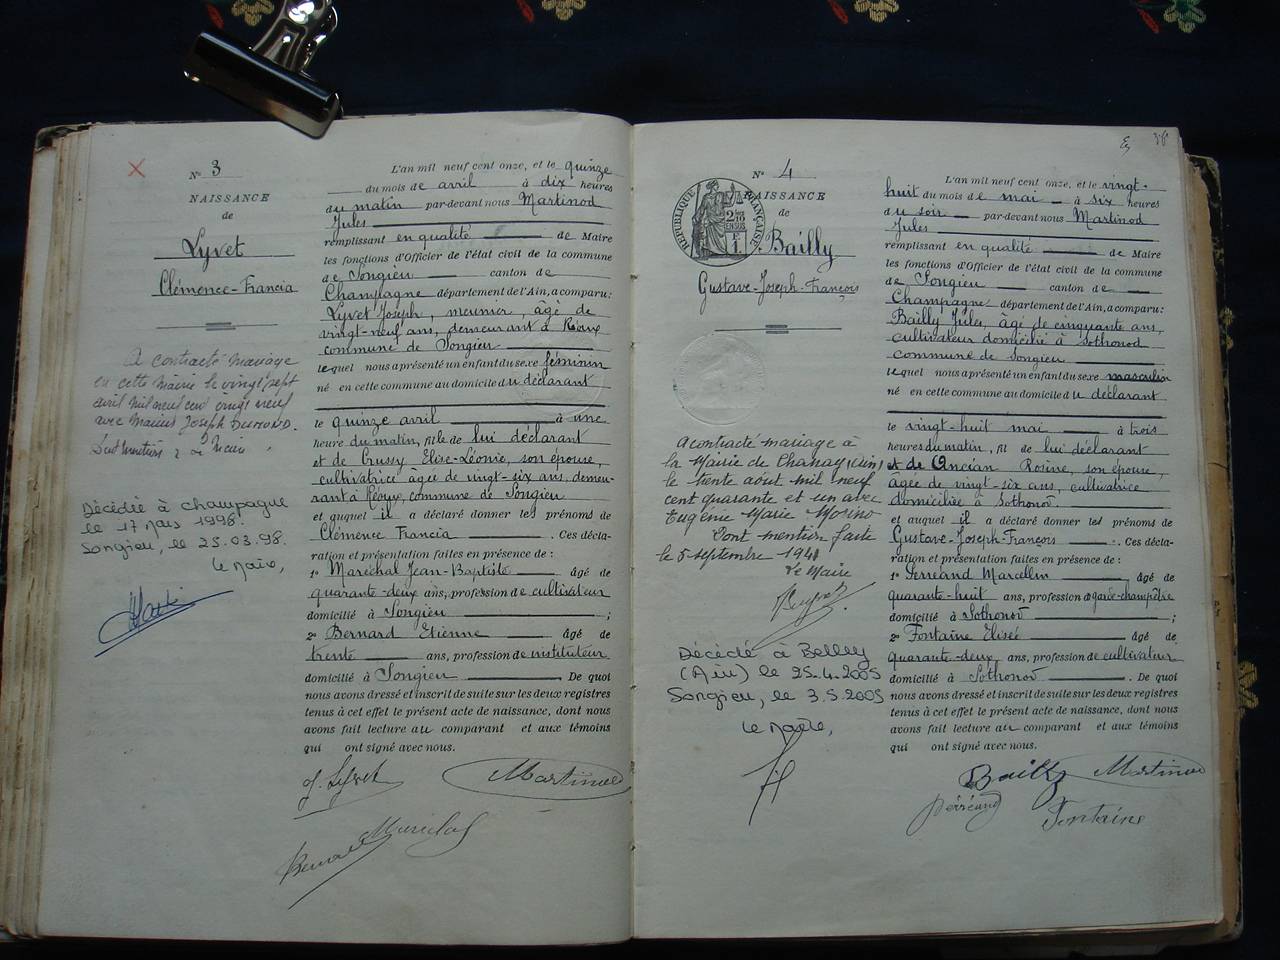 N° 3
NAISSANCE
de
Lyvet
Clémence-Francia
A contracté mariage
en cette mairie le vingt sept
avril mil neuf cent vingt neuf
avec Marius Joseph
Le Maire
Décédée à Champagne
le 17 Mars 1998.
Songieu, le 25.03.98.
Le Maire,
L'an mil neuf cent onze, et le quinze
du mois de avril à dix heures
du matin par-devant nous Martinod
Jules
remplissant en qualité de Maire
les fonctions d'Officier de l'état civil de la commune
de Songieu canton de
Champagne département de l'Ain, a comparu :
Lyvet Joseph, meunier, âgé de
vingt-neuf ans, demeurant à
commune de Songieu
lequel nous a présenté un enfant du sexe féminin
né en cette commune au domicile du déclarant
le quinze avril à une
heure du matin, fille de lui déclarant
et de Crussy Elise-Léonie, son épouse,
cultivatrice âgée de vingt-six ans, demeu-
rant à commune de Songieu
et auquel il a déclaré donner les prénoms de
Clémence Francia . Ces décla-
ration et présentation faites en présence de :
1° Maréchal Jean-Baptiste âgé de
quarante-deux ans, profession de cultivateur
domicilié à Songieu ;
2° Bernard Etienne âgé de
trente ans, profession de instituteur
domicilié à Songieu . De quoi
nous avons dressé et inscrit de suite sur les deux registres
tenus à cet effet le présent acte de naissance, dont nous
avons fait lecture au comparant et aux témoins
qui ont signé avec nous.
J. Lyvet
Martinod
Bernard
Maréchal
N° 4
NAISSANCE
de
RÉPUBLIQUE FRANÇAISE
Bailly
Gustave-Joseph-François
A contracté mariage à
la Mairie de Chanay (Ain)
le trente août mil neuf
cent quarante et un avec
Eugénie Marie Morino
Dont mention faite
le 5 septembre 1941
Le Maire
Décédé à Belley
(Ain) le 25.4.2005
Songieu, le 3.5.2005
Le Maire,
L'an mil neuf cent onze, et le vingt-
huit du mois de mai à six heures
du soir par-devant nous Martinod
Jules
remplissant en qualité de Maire
les fonctions d'Officier de l'état civil de la commune
de Songieu canton de
Champagne département de l'Ain, a comparu :
Bailly Jules, âgé de cinquante ans,
cultivateur domicilié à Sothonod
commune de Songieu
lequel nous a présenté un enfant du sexe masculin
né en cette commune au domicile du déclarant
le vingt-huit mai à trois
heures du matin, fil de lui déclarant
et de Ancian Rosine, son épouse,
âgée de vingt-six ans, cultivatrice
domiciliée à Sothonod.
et auquel il a déclaré donner les prénoms de
Gustave-Joseph-François . Ces décla-
ration et présentation faites en présence de :
1° Marcellin âgé de
quarante-huit ans, profession de garde-champêtre
domicilié à Sothonod ;
2° Fontaine Elisée âgé de
quarante-deux ans, profession de cultivateur
domicilié à Sothonod . De quoi
nous avons dressé et inscrit de suite sur les deux registres
tenus à cet effet le présent acte de naissance, dont nous
avons fait lecture au comparant et aux témoins
qui ont signé avec nous.
Bailly
Martinod
Fontaine